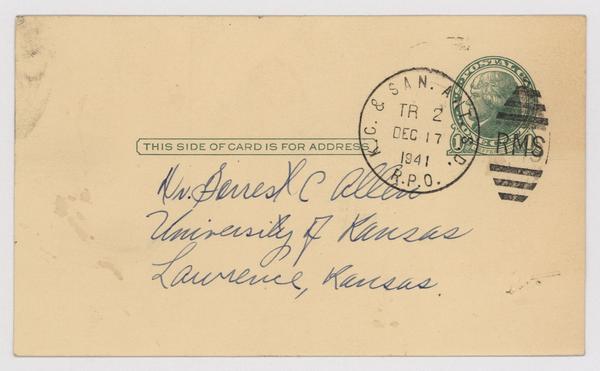 POSTAL CA
K.C. & SAN. ANT. & D.
TR 2
DEC 17
1941
R.P.O.
RMS
THIS SIDE OF CARD IS FOR ADDRESS
Dr. Forrest C Allen
University of Kansas
Lawrence, Kansas.